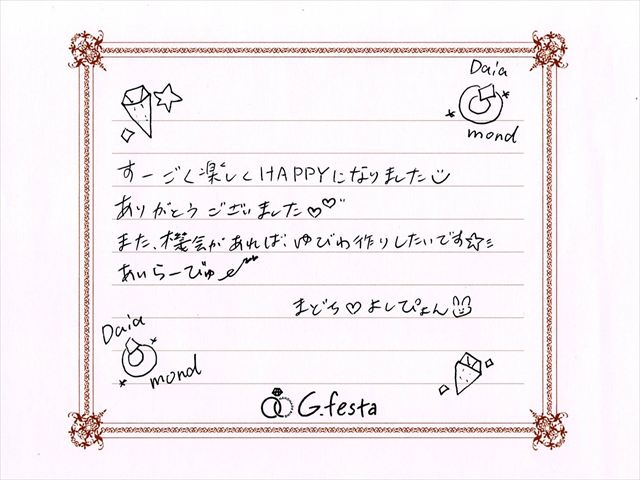 Daia
mond
すーごく楽しくHAPPYになりました
ありがとうございました♡♡
また、機会があれば、ゆびわ作りしたいです☆ミ
あいらーびゅ
まどち♡よしぴょん
Daia
mond
G.festa